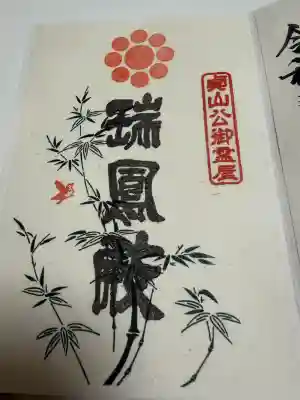 貞山公御霊屋
瑞鳳殿
令和